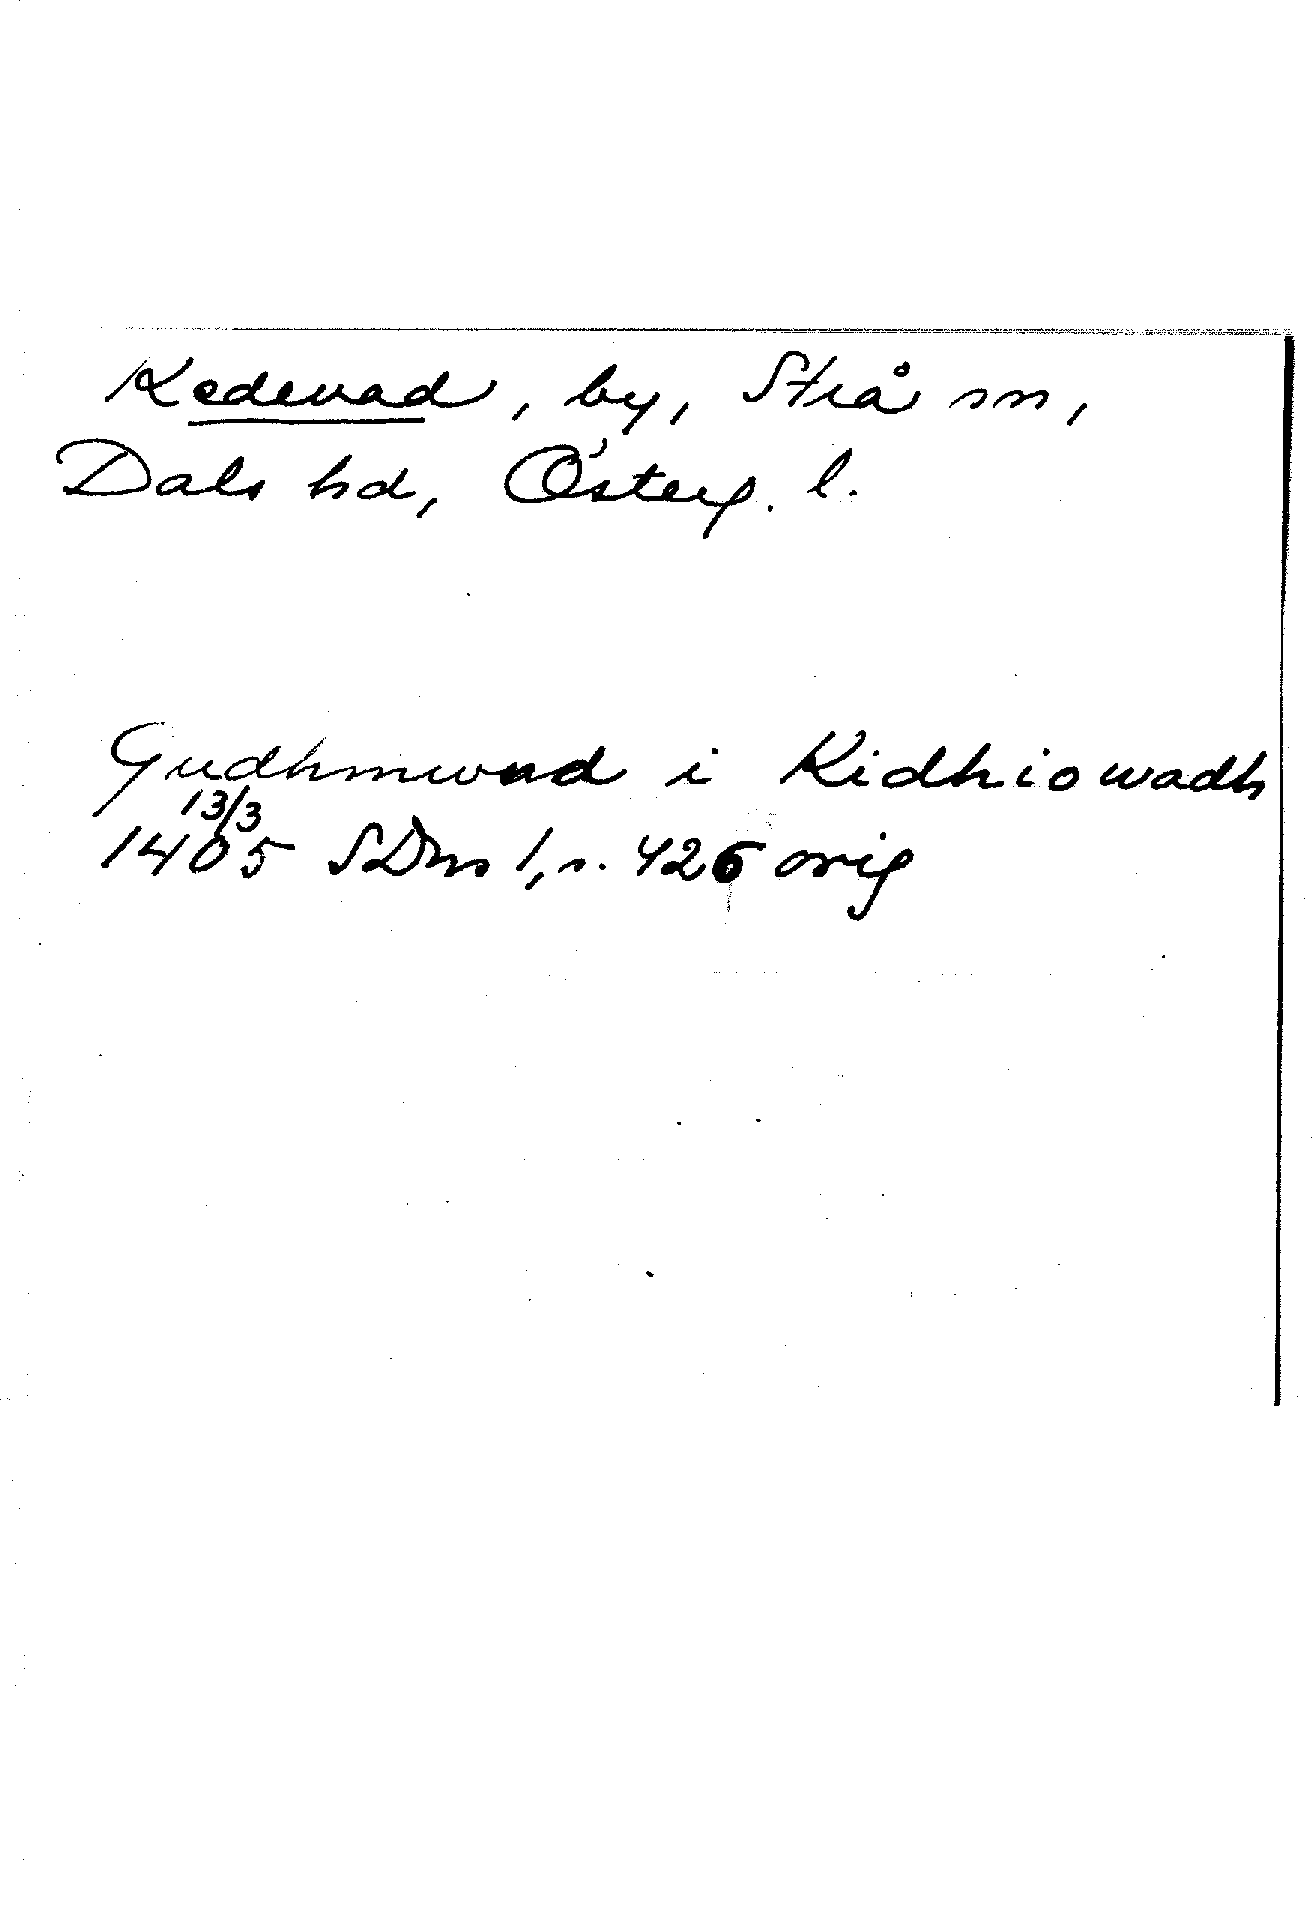 Kedevad, by, Strå sn,
Dals hd, Österg. l.
Gudhmwnd i Kidhiowadh
13/3
1405 SDns 1, s. 426 orig